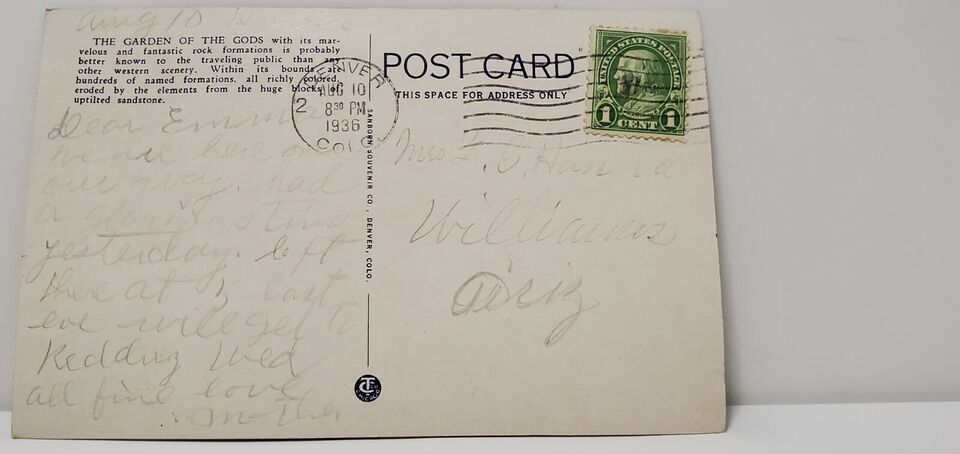 Aug 10 Denver
THE GARDEN OF THE GODS with its mar-
velous and fantastic rock formations is probably
better known to the traveling public than any
other western scenery. Within its bounds are
hundreds of named formations, all richly colored,
eroded by the elements from the huge blocks of
uptilted sandstone.
Dear Emma
we are here on
our way. had
a glorious time
yesterday. left
there at 5 last
eve will get to
Redding Wed
all fine love
mother
SANBORN SOUVENIR CO., DENVER, COLO.
CT CHICAGO
POST CARD
THIS SPACE FOR ADDRESS ONLY
DENVER
2
AUG 10
8 30 PM
1936
COLO.
UNITED STATES POSTAGE
1 CENT 1
Mrs
Williams
Ariz